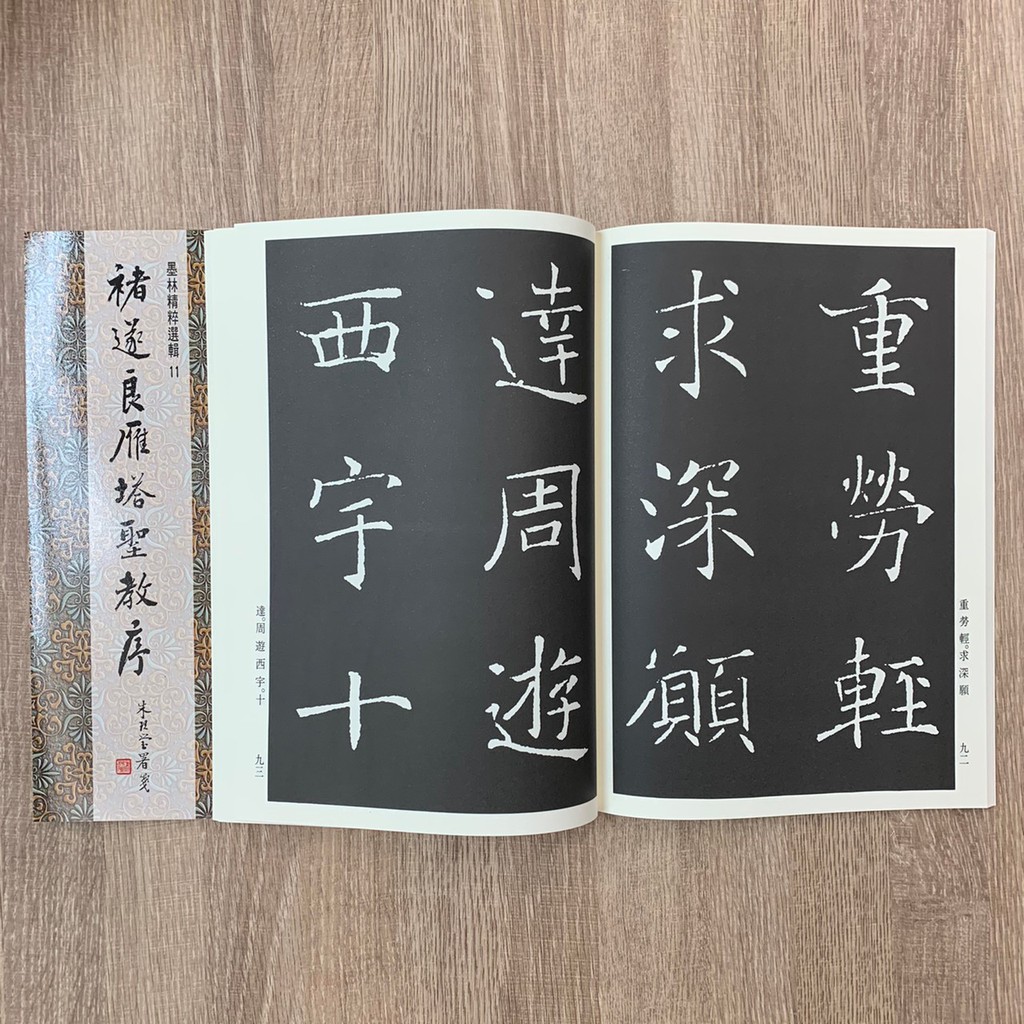 墨林精粹選輯 11
褚遂良雁塔聖教序
朱玖瑩署箋
重勞輕
求深願
重勞輕。求深願
九二
達周遊
西宇十
達。周遊西宇。十
九三